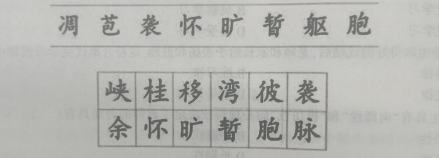 凋 苞 袭 怀 旷 暂 躯 胞
峡 桂 移 湾 彼 袭
余 怀 旷 暂 胞 脉